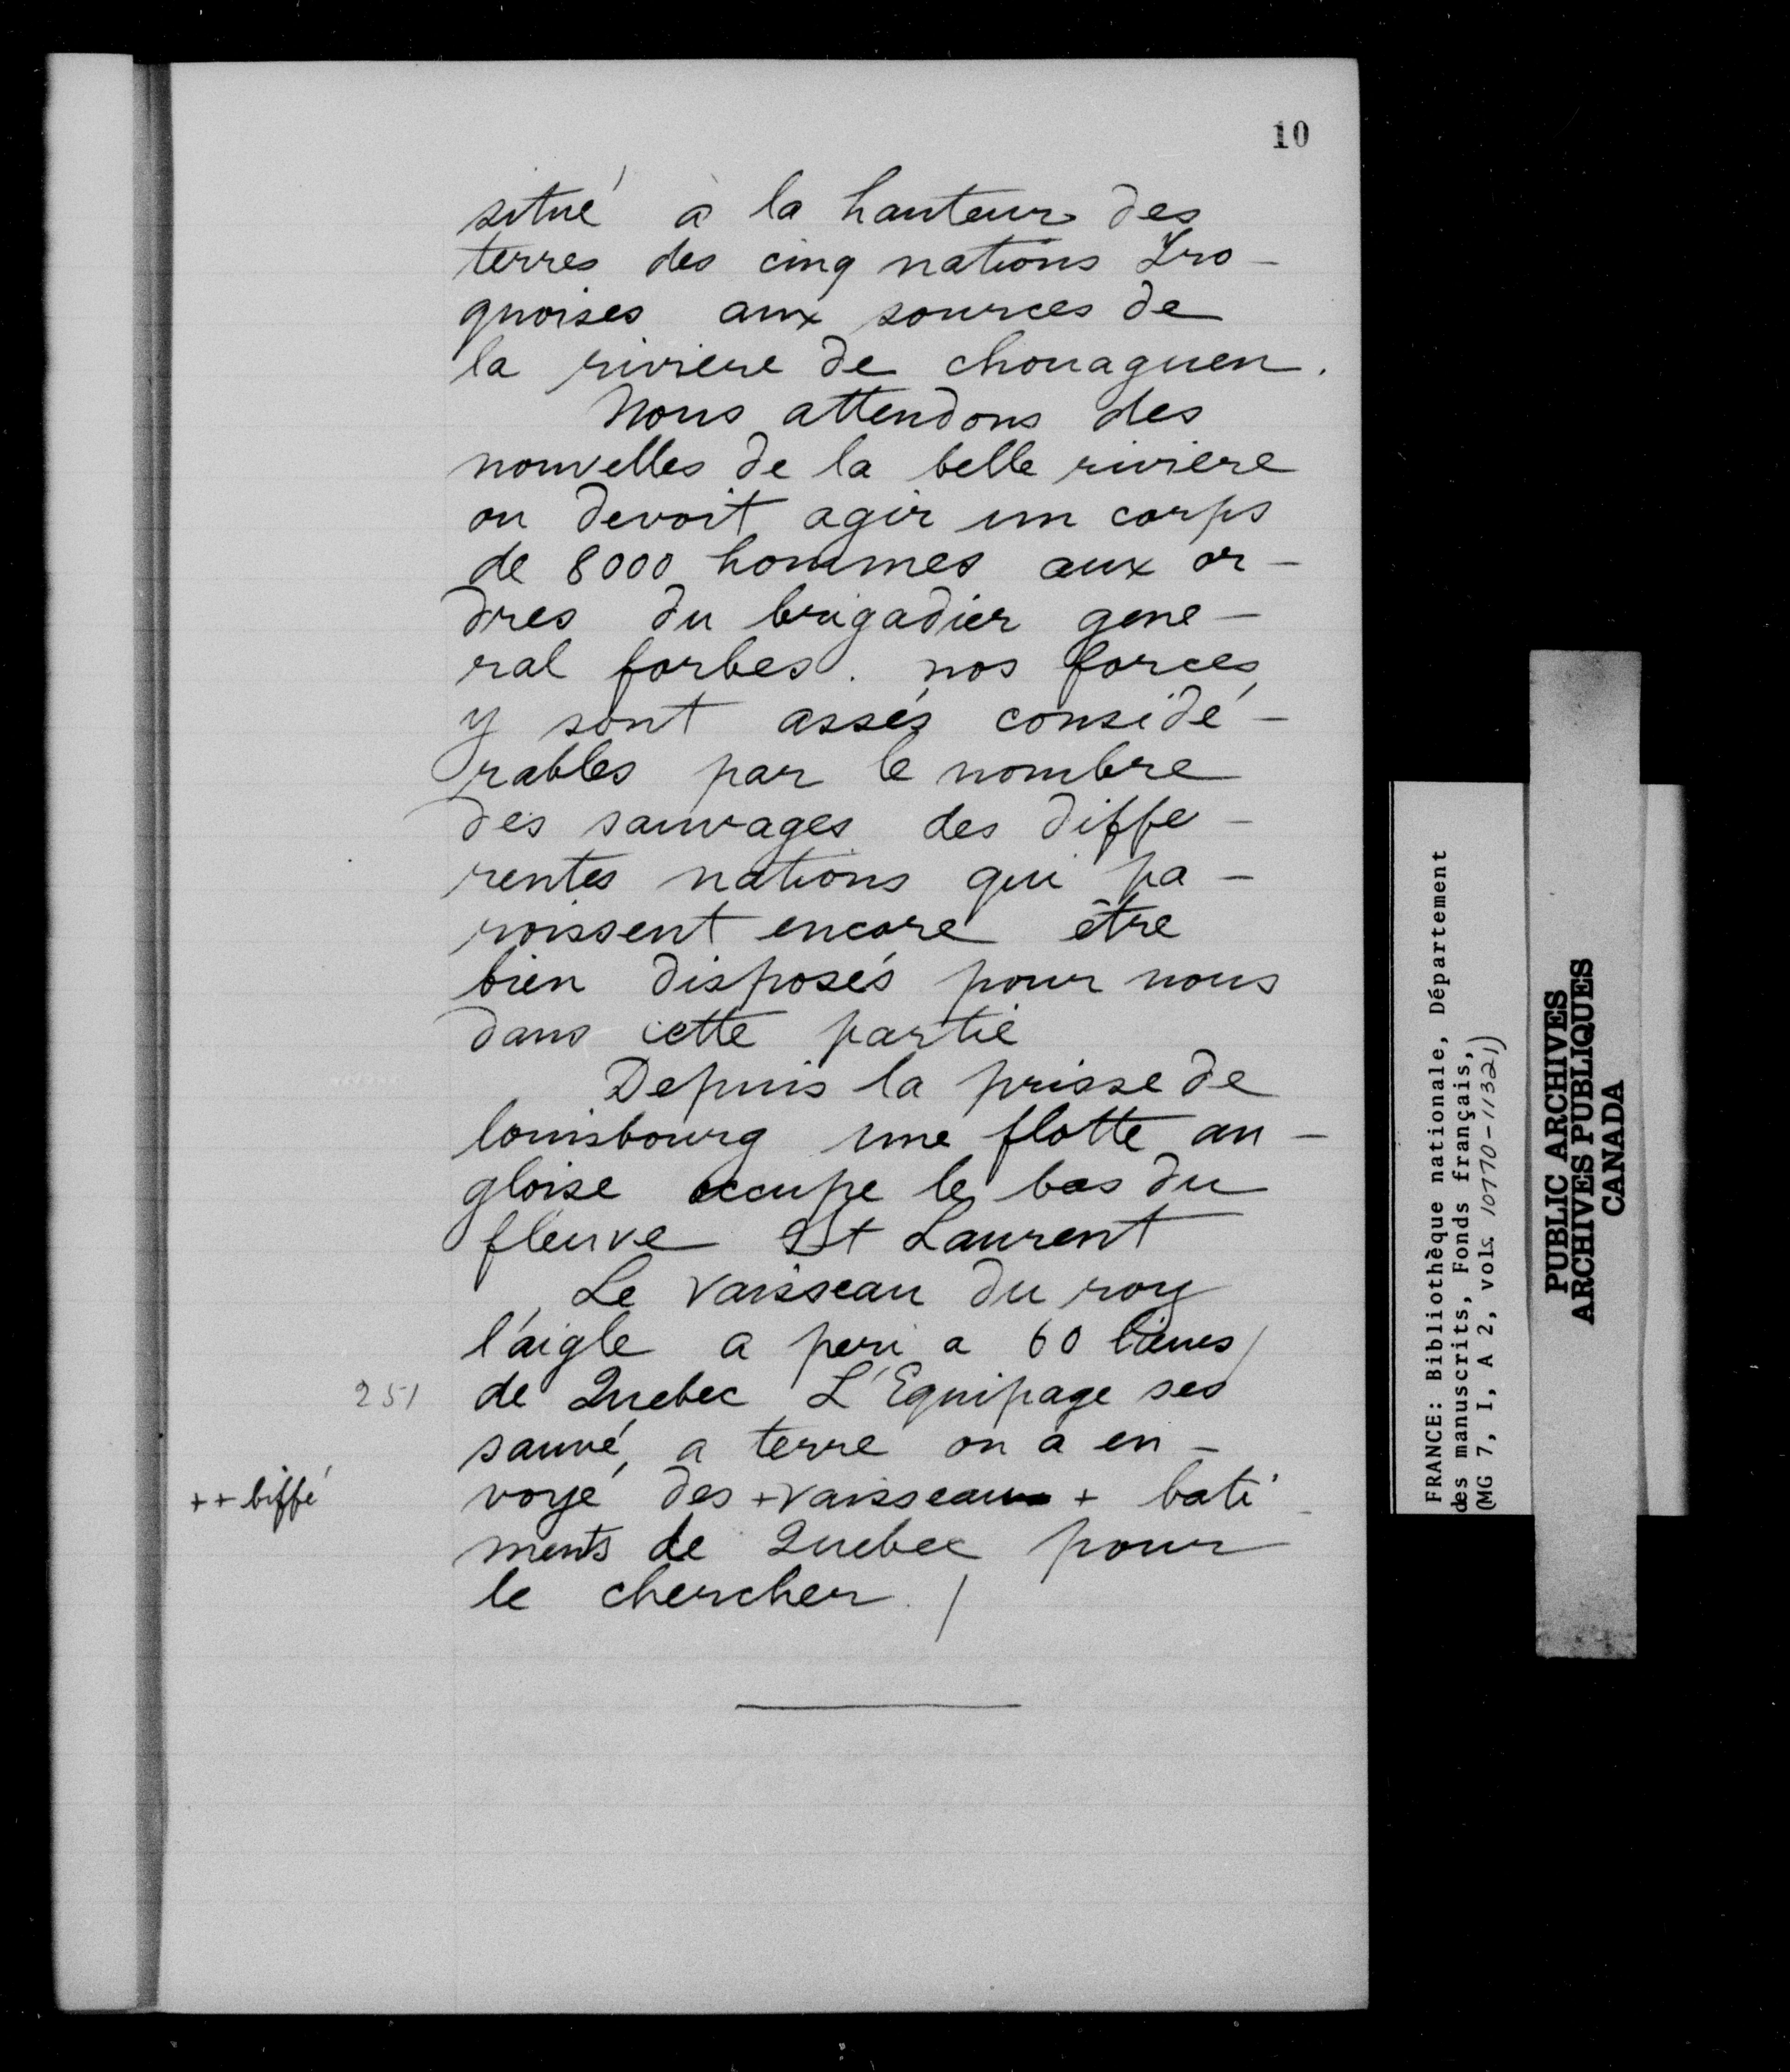 10
situé à la hauteur des
terres des cinq nations Iro-
quoises aux sources de
la riviere de chouaguen.
Nous attendons des
nouvelles de la belle riviere
ou devoit agir un corps
de 8000 hommes aux or-
dres du brigadier gene-
ral forbes. nos forces
y sont assés considé-
rables par le nombre
des sauvages des diffe-
rentes nations qui pa-
roissent encore être
bien disposés pour nous
dans cette partie
Depuis la prisse de
louisbourg une flotte an-
gloise occupe le bas du
fleuve St Laurent
Le vaisseau du roy
l'aigle a peri a 60 lieues/
251 de Quebec L'Equipage ses
sauvé, a terre on a en-
++ biffé voyé des + vaisseaux + bati-
ments de Quebec pour
le chercher. /
FRANCE: Bibliothèque nationale, Département
des manuscrits, Fonds français,
(MG 7, I, A 2, vols. 10770-11321)
PUBLIC ARCHIVES
ARCHIVES PUBLIQUES
CANADA